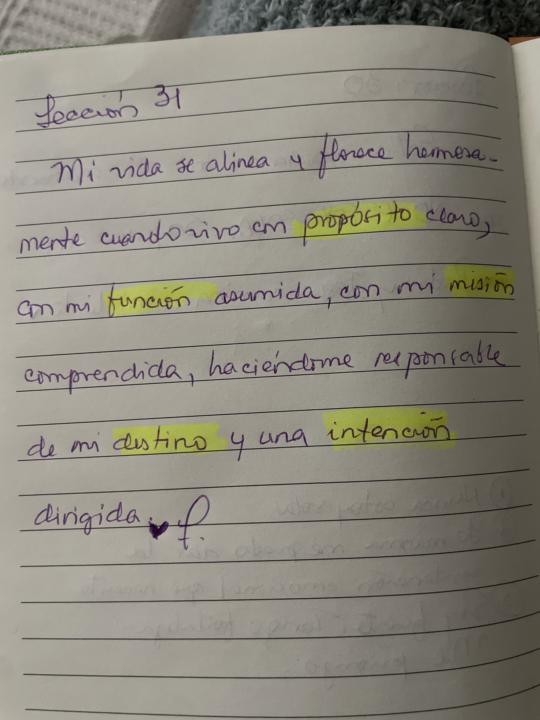 Lección 31
Mi vida se alinea y florece hermosa-
mente cuando vivo con propósito claro,
con mi función asumida, con mi misión
comprendida, haciéndome responsable
de mi destino y una intención
dirigida.